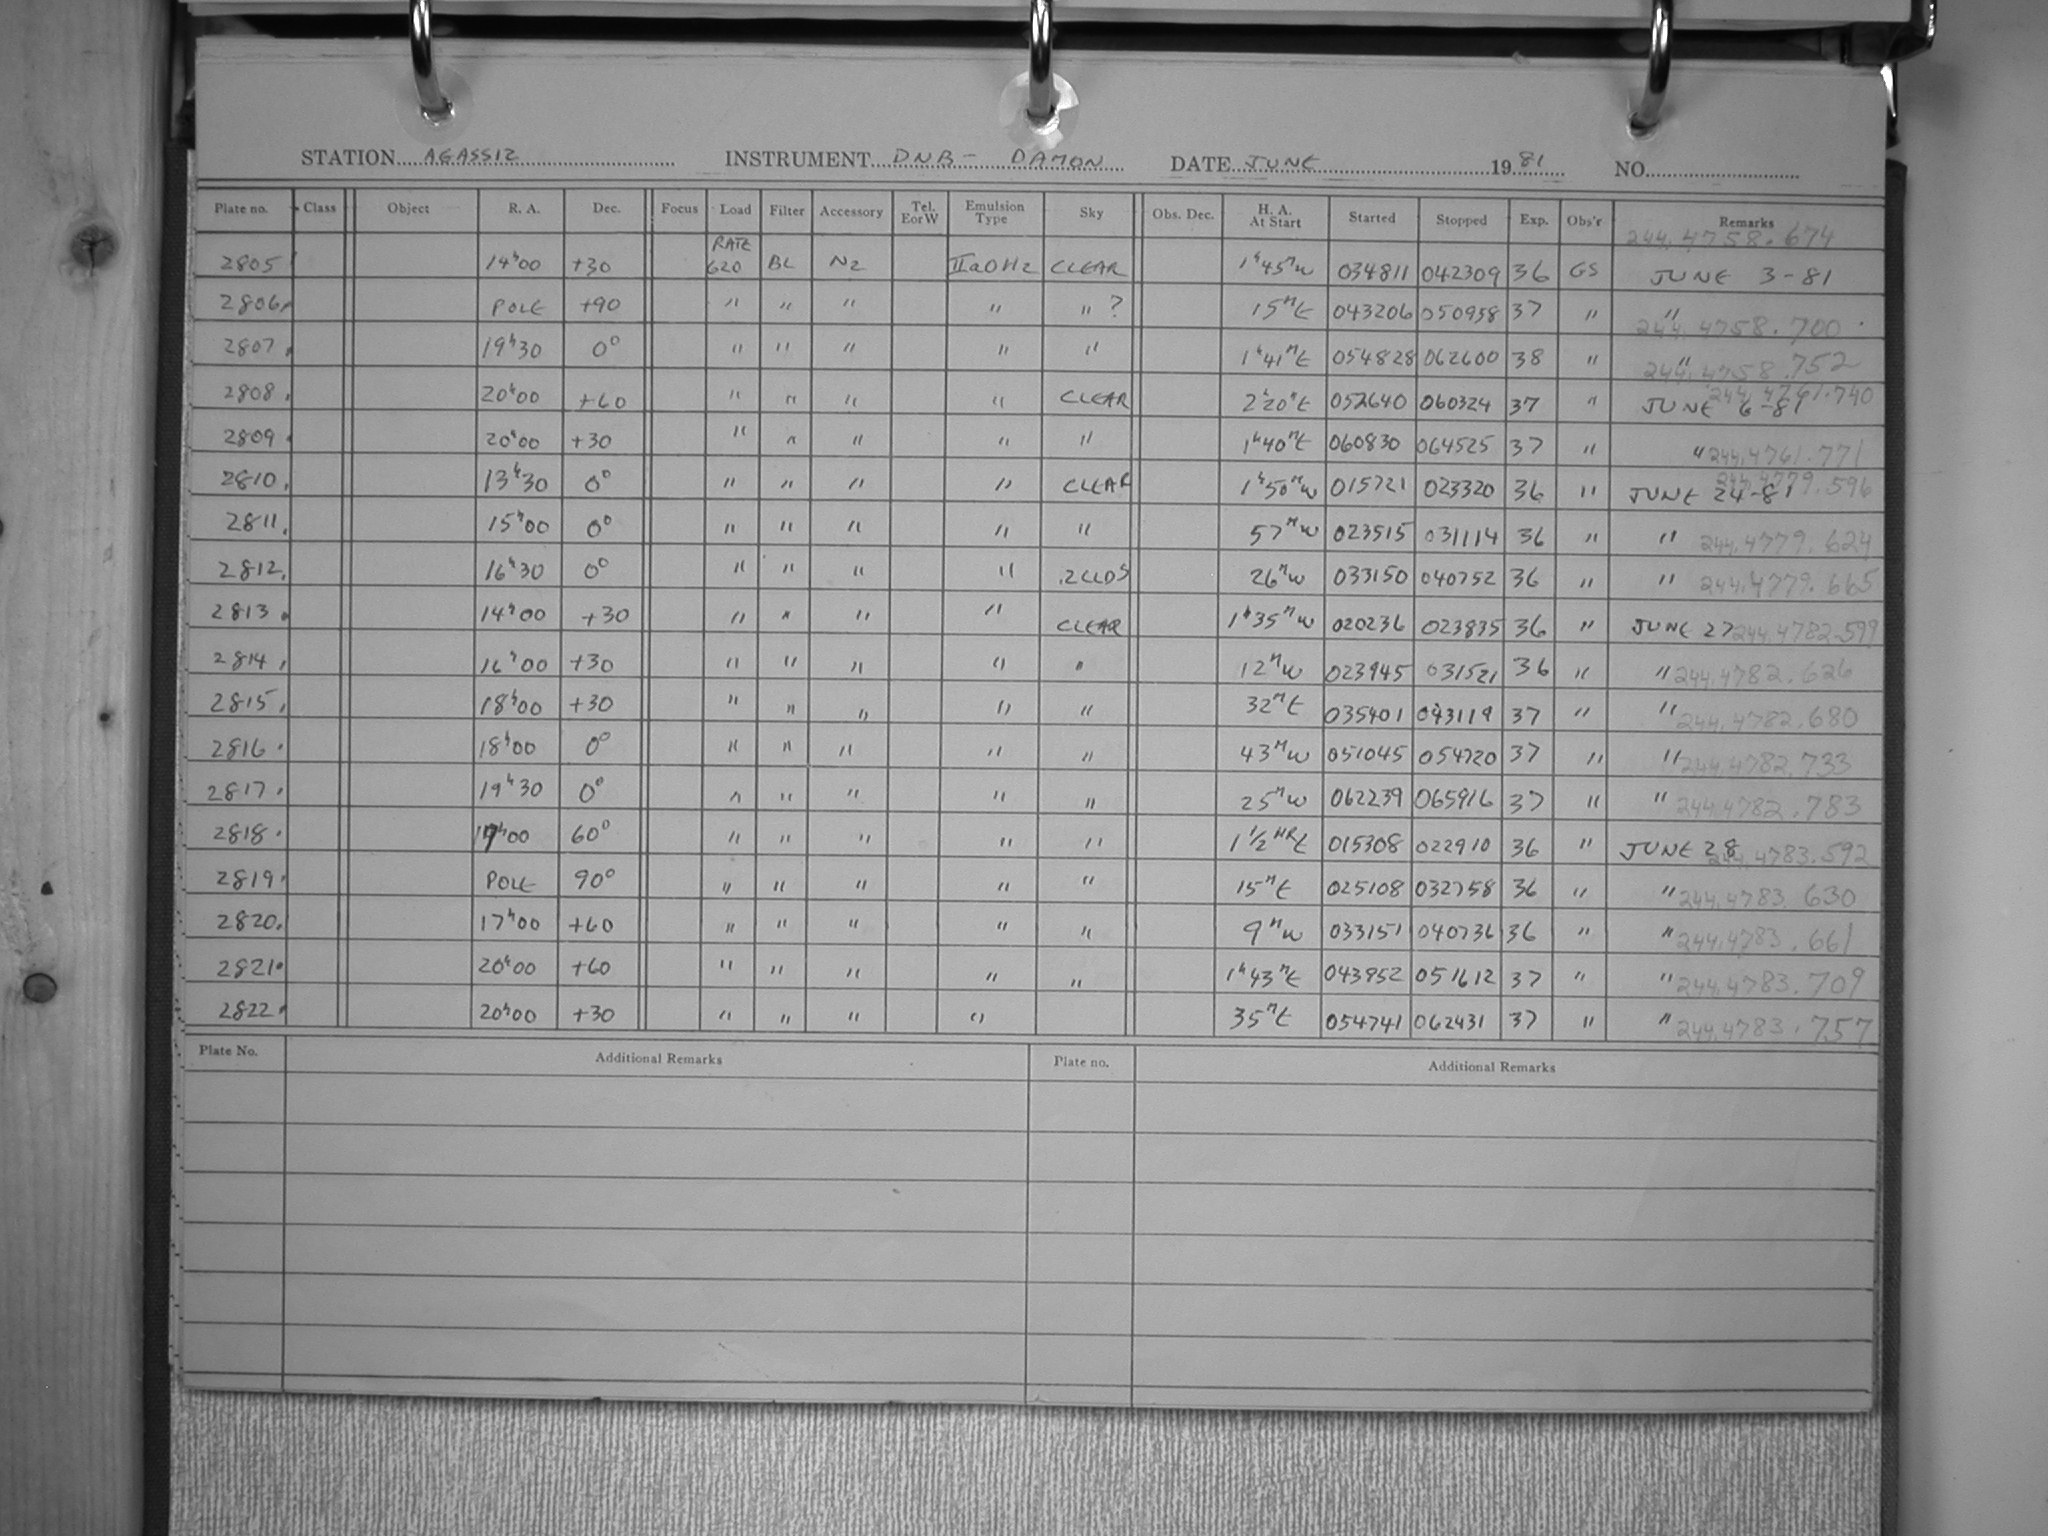 STATION AGASSIZ INSTRUMENT DNB - DAMON DATE JUNE 1981 NO.
Plate no. Class Object R. A. Dec. Focus Load Filter Accessory Tel. E or W Emulsion Type Sky Obs. Dec. H. A. At Start Started Stopped Exp. Obs'r Remarks
2805 14h00 +30 RATE 620 BL N2 IIaOH2 CLEAR 1h45m W 034811 042309 36 GS 244,4758.674 JUNE 3-81
2806 POLE +90 " " " " " ? 15m E 043206 050958 37 " " 244,4758.700
2807 19h30 0° " " " " " 1h41m E 054828 062600 38 " " 244,4758.752
2808 20h00 +60 " " " " CLEAR 2h20m E 052640 060324 37 " JUNE 6-81 244,4761.740
2809 20h00 +30 " " " " " 1h40m E 060830 064525 37 " " 244,4761.771
2810 13h30 0° " " " " CLEAR 1h50m W 015721 023320 36 " JUNE 24-81 244,4779.596
2811 15h00 0° " " " " " 57m W 023515 031114 36 " " 244,4779.624
2812 16h30 0° " " " " .2CLDS 26m W 033150 040752 36 " " 244,4779.665
2813 14h00 +30 " " " " CLEAR 1h35m W 020236 023835 36 " JUNE 27 244,4782.599
2814 16h00 +30 " " " " " 12m W 023945 031521 36 " " 244,4782.626
2815 18h00 +30 " " " " " 32m E 035401 043119 37 " " 244,4782.680
2816 18h00 0° " " " " " 43m W 051045 054720 37 " " 244,4782.733
2817 19h30 0° " " " " " 25m W 062239 065916 37 " " 244,4782.783
2818 17h00 60° " " " " " 1 1/2 HR E 015308 022910 36 " JUNE 28 244,4783.592
2819 POLE 90° " " " " " 15m E 025108 032758 36 " " 244,4783.630
2820 17h00 +60 " " " " " 9m W 033151 040736 36 " " 244,4783.661
2821 20h00 +60 " " " " " 1h43m E 043952 051612 37 " " 244,4783.709
2822 20h00 +30 " " " " 35m E 054741 062431 37 " " 244,4783.757
Plate No. Additional Remarks Plate no. Additional Remarks